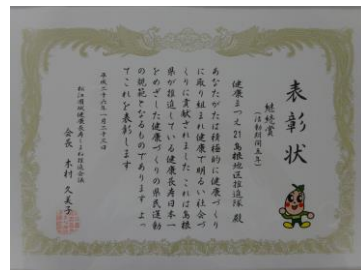 表彰状
継続賞
(活動期間五年)
健康まつえ21島根地区推進隊 殿
あなたがたは積極的に健康づくり
に取り組まれ健康で明るい社会づ
くりに貢献されましたこれは島根
県が推進している健康長寿日本一
をめざした健康づくりの県民運動
の規範となるものであります よっ
てこれを表彰します
平成二十六年一月二十三日
松江圏域健康長寿しまね推進会議
会長 木村 久美子